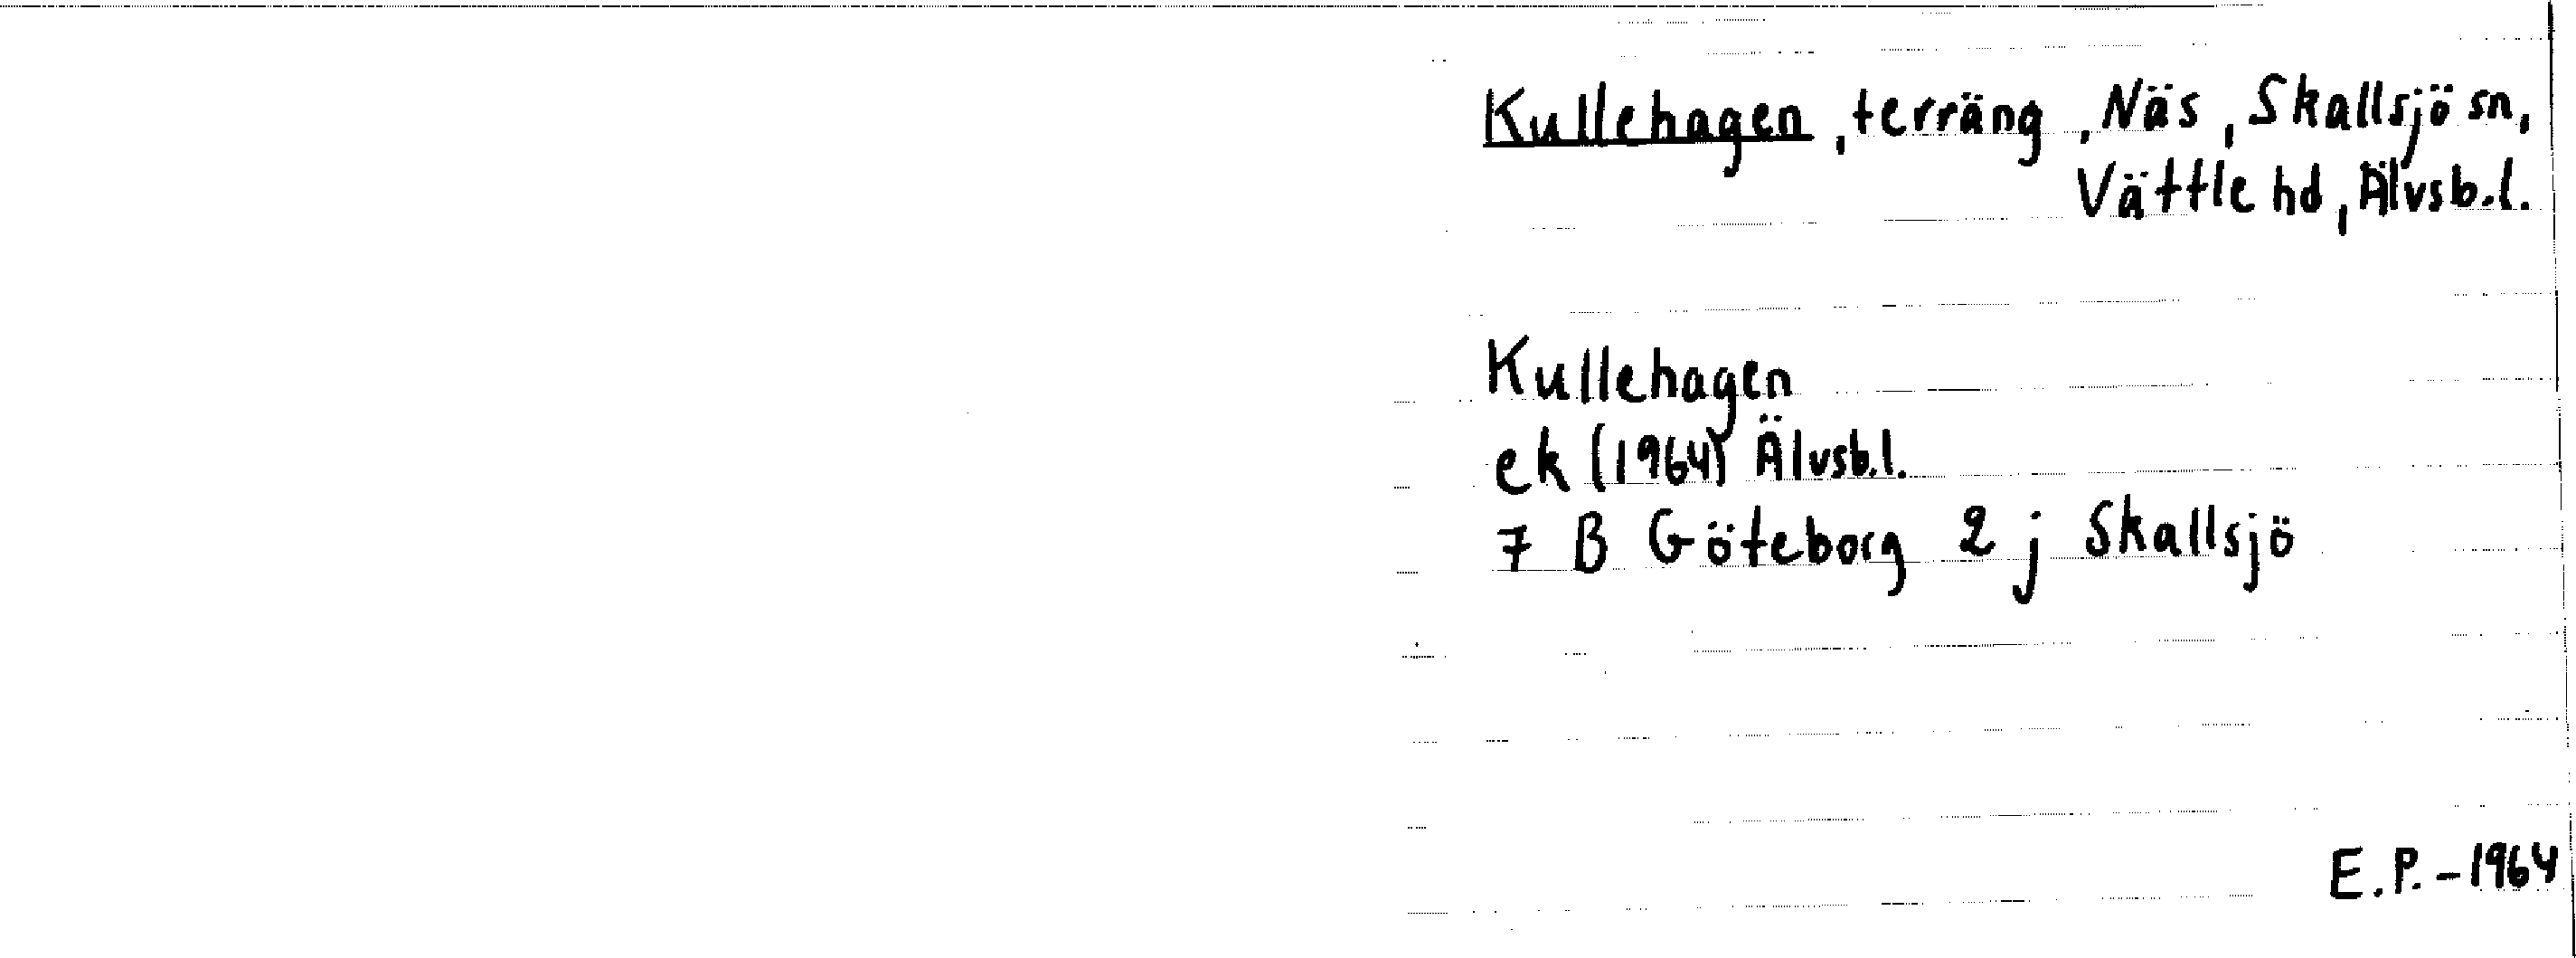 Kullehagen, terräng, Näs, Skallsjö sn,
Vättle hd, Älvsb.l.
Kullehagen
ek (1964) Älvsb.l.
7 B Göteborg 2 j Skallsjö
E.P. - 1964